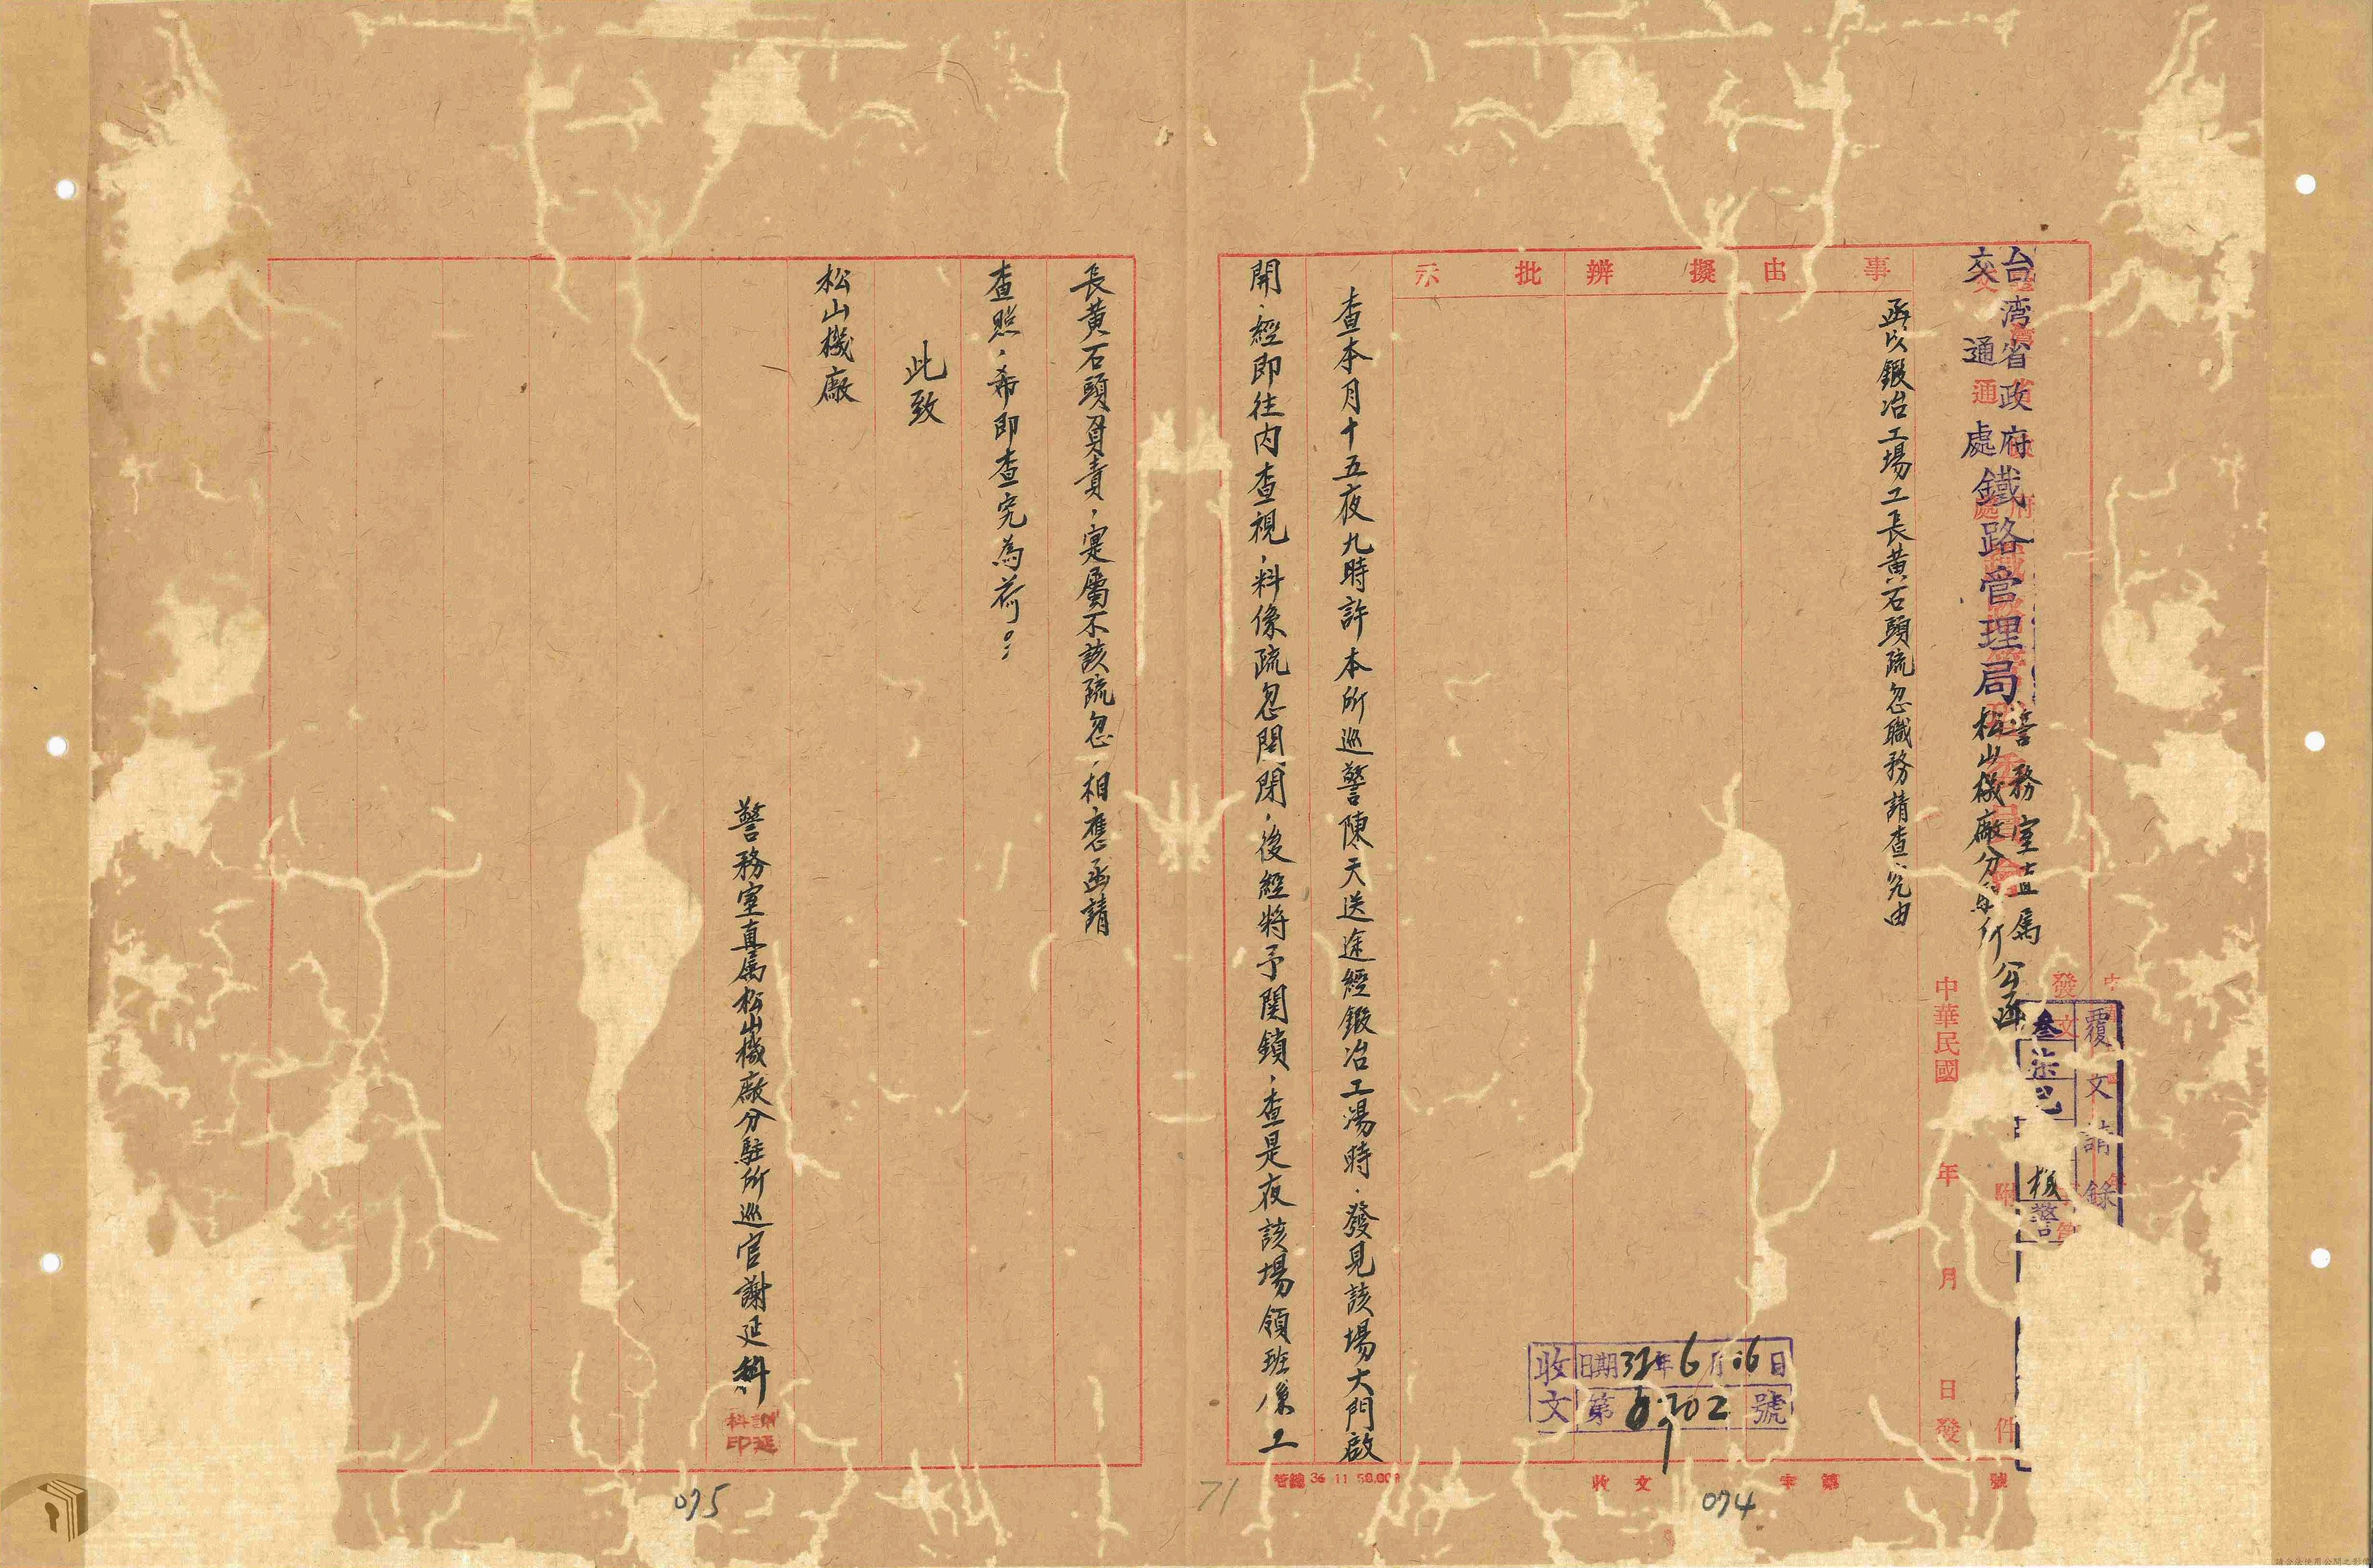 台湾省政府
交通處
鐵路管理局
警務室直屬
松山機廠分駐所
公函
覆文請錄
叁柒巳
松警
中華民國 年 月 日發
發文
附 件
號
事由
擬辦
批示
函以鍛冶工場工長黃石頭疏忽職務請查究由
收文
日期37年6月16日
第 號
查本月十五夜九時許本所巡警陳天送途經鍛冶工湯時，發見該場大門啟
開，經即往內查視，料係疏忽関閉，後經將予関鎖，查是夜該場領班係工
收文 字第 號
管總 36 11 50.000
074
71
長黃石頭負責，寔屬不該疏忽，相應函請
查照，希即查究為荷。
此致
松山機廠
警務室直属松山機廠分駐所巡官謝延科
謝延科印
075